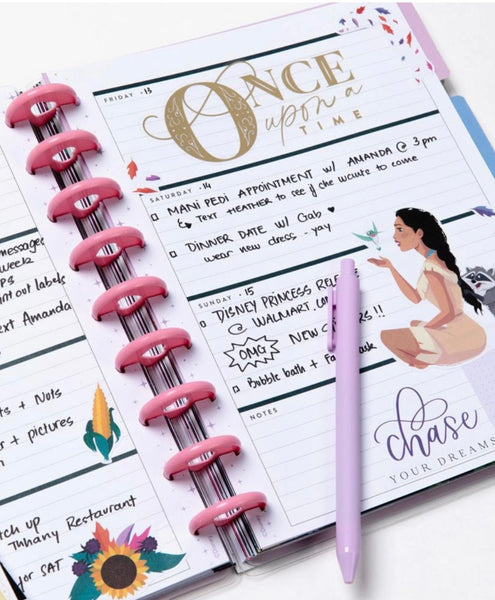 messages
week
int out labels
ext Amanda
ts + Nuts
r + pictures
tch up
Tiffany Restaurant
for SAT
FRIDAY · 13
ONCE
upon a
TIME
SATURDAY · 14
MANI PEDI APPOINTMENT w/ AMANDA @ 3pm
TEXT HEATHER to see if she wants to come
DINNER DATE w/ Gab
wear new dress - yay
SUNDAY · 15
DISNEY PRINCESS RELEASE
@ WALMART.COM
OMG NEW !!
Bubble bath +
NOTES
chase
YOUR DREAMS